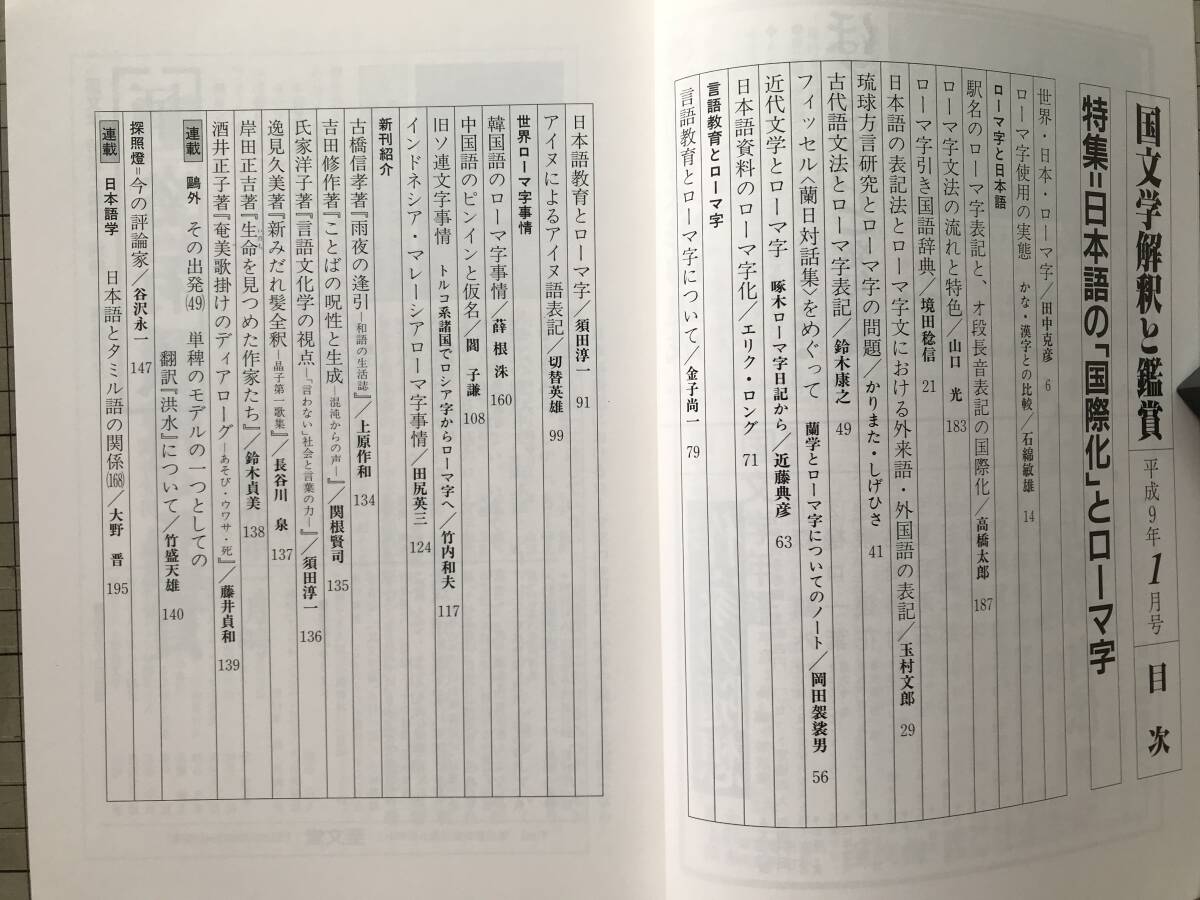 国文学解釈と鑑賞 平成9年1月号 目次
特集=日本語の「国際化」とローマ字
世界・日本・ローマ字/田中克彦 6
ローマ字使用の実態 かな・漢字との比較/石綿敏雄 14
ローマ字と日本語
駅名のローマ字表記と、オ段長音表記の国際化/高橋太郎 187
ローマ字文法の流れと特色/山口 光 183
ローマ字引き国語辞典/境田稔信 21
日本語の表記法とローマ字文における外来語・外国語の表記/玉村文郎 29
琉球方言研究とローマ字の問題/かりまた・しげひさ 41
古代語文法とローマ字表記/鈴木康之 49
フィッセル〈蘭日対話集〉をめぐって 蘭学とローマ字についてのノート/岡田袈裟男 56
近代文学とローマ字 啄木ローマ字日記から/近藤典彦 63
日本語資料のローマ字化/エリク・ロング 71
言語教育とローマ字
言語教育とローマ字について/金子尚一 79
日本語教育とローマ字/須田淳一 91
アイヌによるアイヌ語表記/切替英雄 99
世界ローマ字事情
韓国語のローマ字事情/薛 根洙 160
中国語のピンインと仮名/閻 子謙 108
旧ソ連文字事情 トルコ系諸国でロシア字からローマ字へ/竹内和夫 117
インドネシア・マレーシアローマ字事情/田尻英三 124
新刊紹介
古橋信孝著『雨夜の逢引―和語の生活誌』/上原作和 134
吉田修作著『ことばの呪性と生成 混沌からの声―』/関根賢司 135
氏家洋子著『言語文化学の視点―「言わない」社会と言葉の力―』/須田淳一 136
逸見久美著『新みだれ髪全釈―晶子第一歌集』/長谷川 泉 137
岸田正吉著『生命を見つめた作家たち』/鈴木貞美 138
酒井正子著『奄美歌掛けのディアローグ―あそび・ウワサ・死』/藤井貞和 139
連載 鷗外 その出発(49) 単稗のモデルの一つとしての
翻訳『洪水』について/竹盛天雄 140
探照燈=今の評論家/谷沢永一 147
連載 日本語学 日本語とタミル語の関係(168)/大野 晋 195